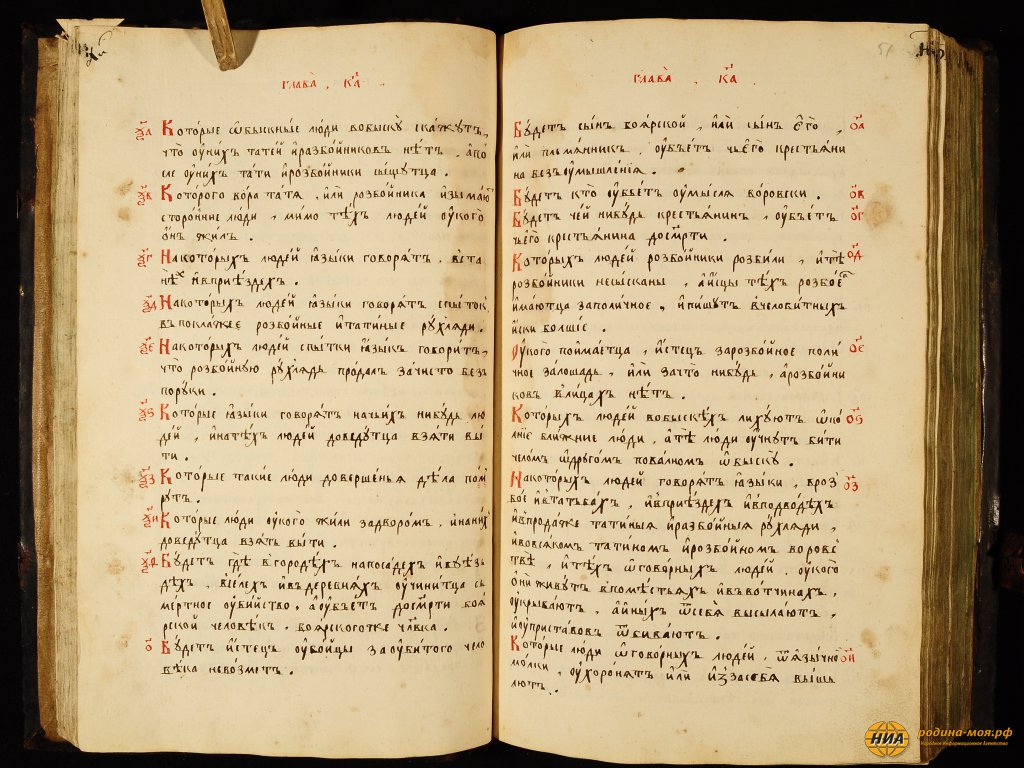 глава , к҃а .
ѯ҃а Которые ѡбыскные люди вобыску скажутъ,
что ѹнихъ татей иразбойниковъ нѣтъ , апо
сле ѹнихъ тати ирозбойники сыщутца .
ѯ҃в Которого вора татя , или розбойника изымаю
сторонние люди , мимо тѣхъ людей ѹкого
онъ жилъ .
ѯ҃г Накоторыхъ людей языки говорятъ , вста
нѣх ивприѣздехъ .
ѯ҃д Накоторыхъ людей языки говорятъ спытокъ
впоклажее розбойные итатиные рухляди .
ѯ҃е Накоторыхъ людей спытки языкъ говоритъ,
что розбойную рухлядь продалъ зачисто безъ
поруки .
ѯ҃ѕ Которые языки говорятъ начьихъ нибудь лю
дей , инатѣхъ людей доведутца взяти вы
ти .
ѯ҃з Которые такие люди довершенья дѣла пом
рутъ .
ѯ҃и Которые люди ѹкого жили задворомъ , инанихъ
доведутца взять выти .
ѯ҃ѳ Будетъ гдѣ вгородѣхъ напосадехъ ивуѣзъ
дѣхъ , вселехъ ивъдеревняхъ ѹчинитца съ
мертное ѹбийство , аѹбьетъ досмрти боя
рской человѣкъ . боярскогоже члвка .
о҃ Будетъ истецъ ѹбойцы заѹбитого чело
вѣка невозметъ .
51
глава к҃а .
Будетъ сынъ боярской , или сынъ его , о҃а
или племянникъ . ѹбьетъ чьего крестьяни
на безъѹмышления .
Будетъ кто ѹбьетъ ѹмысля воровски . о҃в
Будетъ чей нибудь крестьянинъ , ѹбьетъ о҃г
чьего крестьянина досмрти .
Которыхъ людей розбойники розбили , атѣ о҃д
розбойники несысканы , аисцы тѣхъ розбоев
имаютца заполичное , ипишутъ вчелобитныхъ
иски болшие .
Ѹкого поимаетца , истецъ зарозбойное поли о҃е
чное залошадь , или зачто нибудь , арозбойни
ковъ влицахъ нѣтъ .
Которыхъ людей вобыскѣхъ лихуютъ ѡпо о҃ѕ
лние ближние люди , атѣ люди ѹчнутъ бити
челомъ ѡдругомъ повалномъ ѡбыску .
Накоторыхъ людей говорятъ языки , врозъ о҃з
бое ивтатьбахъ , ивприѣздех ивподводѣхъ
ивпродаже татиныя иразбойныя рухляди ,
ивовсякомъ татиномъ ирозбойномъ воровс
твѣ , итѣхъ ѡговорныхъ людей , ѹкого
они живутъ впомѣстьяхъ ивъвотчинахъ ,
ѹкрываютъ , аиныхъ ѿсебя высылаютъ ,
иѹприставовъ ѿбиваютъ .
Которые люди ѡговорныхъ людей , ѿязычно о҃и
молки , ѹхоронятъ или иззасебя вышь
лютъ .
НИА
родина-моя.рф
Народное Информационное Агентство